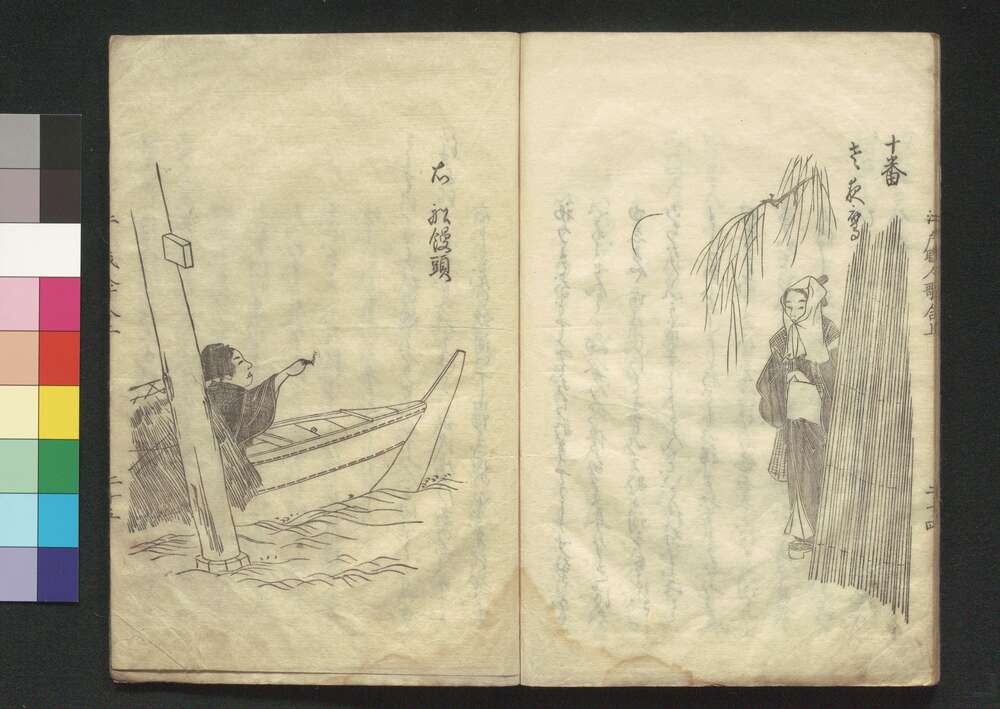 十番
左 夜鷹
右 船饅頭
江戸職人歌合上
二十四